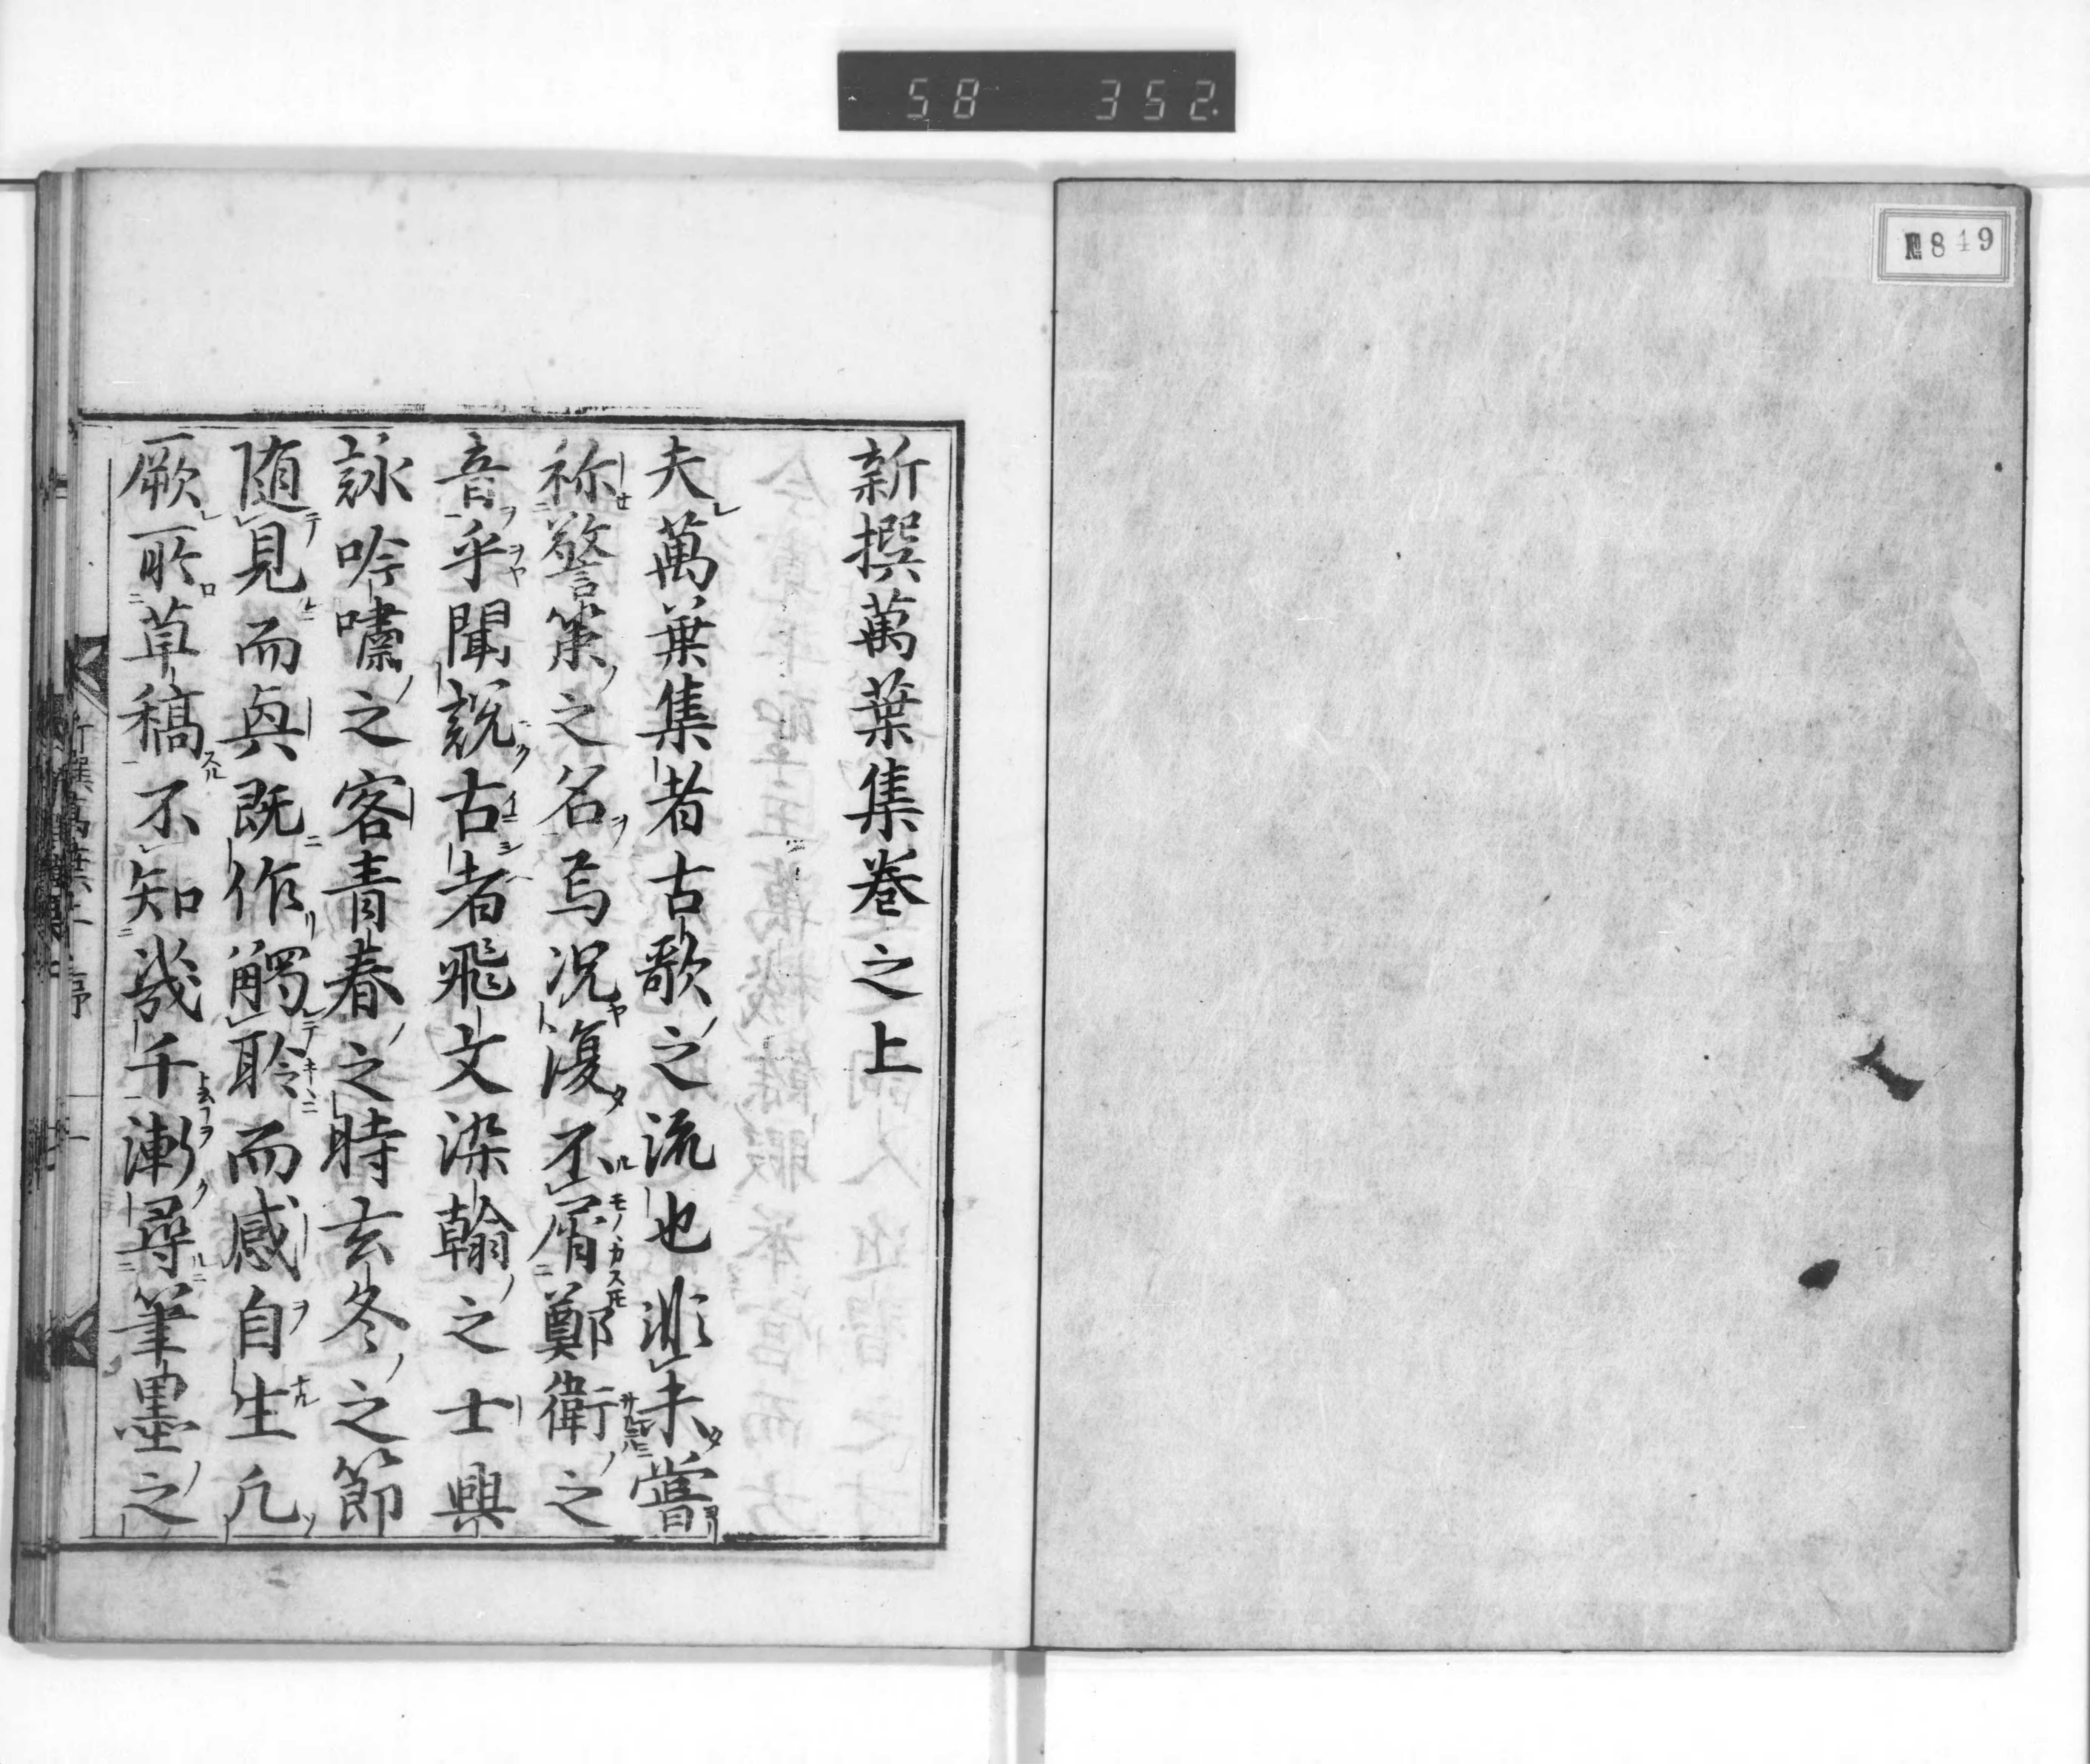 58 352
849
新撰萬葉集巻之上
夫萬葉集者古歌之流也非未嘗
祢警策之名焉况復不屑鄭衛之
音乎聞説古者飛文染翰之士興
詠吟嘯之客青春之時玄冬之節
随見而興既作觸聆而感自生凢
厥所草稿不知幾千漸尋筆墨之